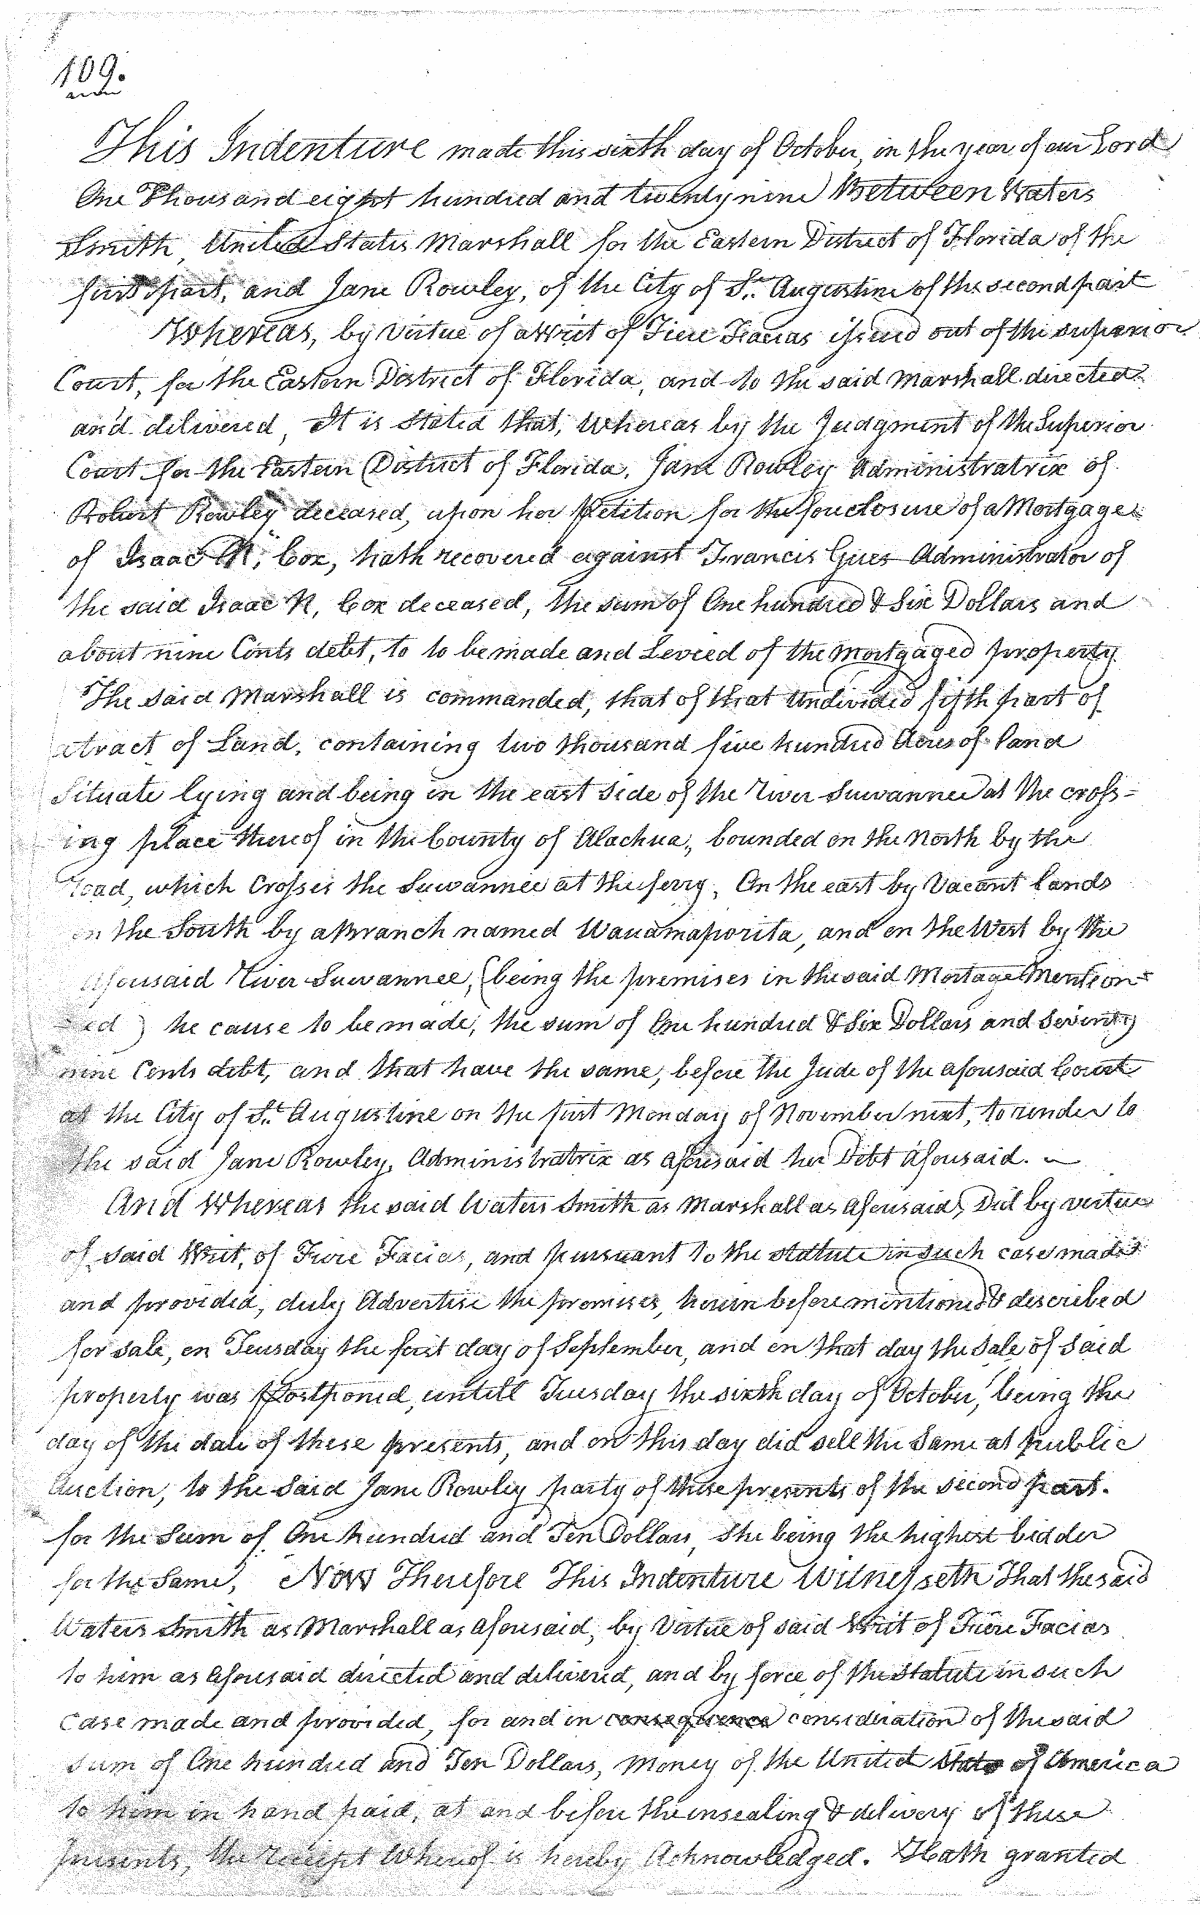 109.
This Indenture made this sixth day of October, in the year of our Lord
One Thousand eight hundred and twenty nine Between Waters
Smith, United States Marshall for the Eastern District of Florida of the
first part, and Jane Rowley, of the City of St. Augustine of the second part
Whereas, by virtue of a Writ of Fieri Facias issued out of the superior
Court, for the Eastern District of Florida, and to the said Marshall directed
and delivered, It is stated that, Whereas by the Judgment of the Superior
Court for the Eastern District of Florida, Jane Rowley Administratrix of
Robert Rowley deceased, upon her Petition for the foreclosure of a Mortgage
of Isaac N. Cox, hath recovered against Francis Gues Administrator of
the said Isaac N. Cox deceased, the sum of One hundred & Six Dollars and
about nine Cents debt, to to be made and Levied of the mortgaged property
The said Marshall is commanded, that of that Undivided fifth part of
a tract of Land, containing two thousand five hundred Acres of land
Situate lying and being in the east side of the River Suwannee at the cross=
ing place thereof in the County of Alachua, bounded on the North by the
road, which Crosses the Suwannee at the ferry, On the east by Vacant lands
on the South by a Branch named Wauamaporita, and on the West by the
aforesaid River Suwannee, (being the premises in the said Mortage Mention=
=ed) he cause to be made, the sum of One hundred & Six Dollars and Seventy
nine Cents debt, and that have the same, before the Jude of the aforesaid Court
at the City of St. Augustine on the first Monday of November next, to render to
the said Jane Rowley, Administratrix as aforesaid her Debt aforesaid.
And Whereas the said Waters Smith as Marshall as aforesaid, Did by virtue
of said Writ, of Fieri Facias, and pursuant to the statute in such case made
and provided, duly Advertise the premises, herein before mentioned & described
for sale, on Teusday the first day of September, and on that day the sale of said
property was Postponed, untill Tuesday the sixth day of October, being the
day of the date of these presents, and on this day did sell the same at public
Auction, to the said Jane Rowley party of these presents of the second part.
for the Sum of One hundred and Ten Dollars, She being the highest bidder
for the Same, Now Therefore This Indenture Witnesseth That the said
Waters Smith as Marshall as aforesaid, by Virtue of said Writ of Fieri Facias
to him as aforesaid directed and delivered, and by force of the statute in such
Case made and provided, for and in consequence consideration of the said
sum of One hundred and Ten Dollars, Money of the United State of America
to him in hand paid, at and before the ensealing & delivery of these
presents, the receipt Whereof is hereby Acknowledged. Hath granted